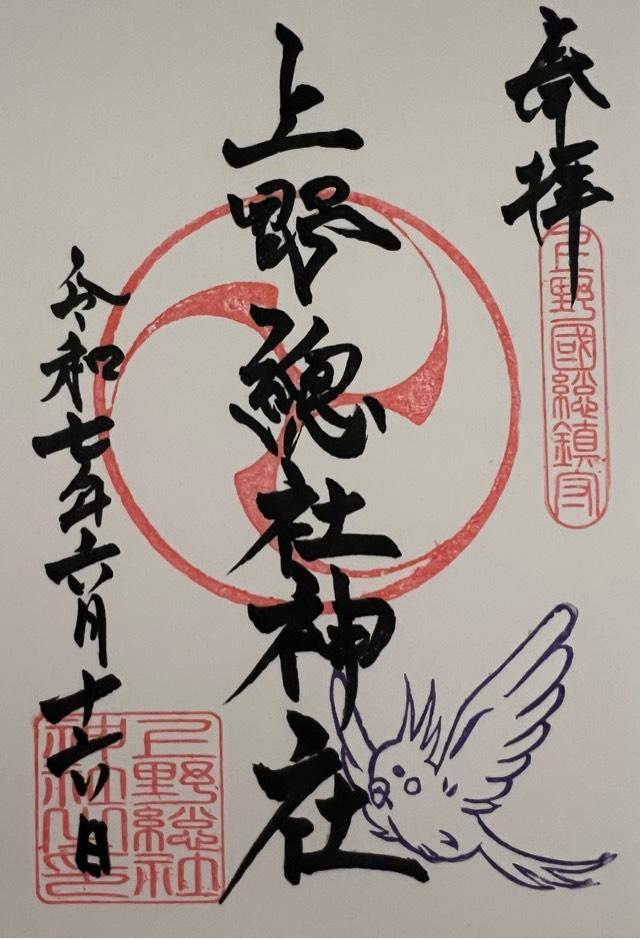 奉拝
上野國総鎮守
上野總社神社
令和七年六月十六日
上野総社
神社之印